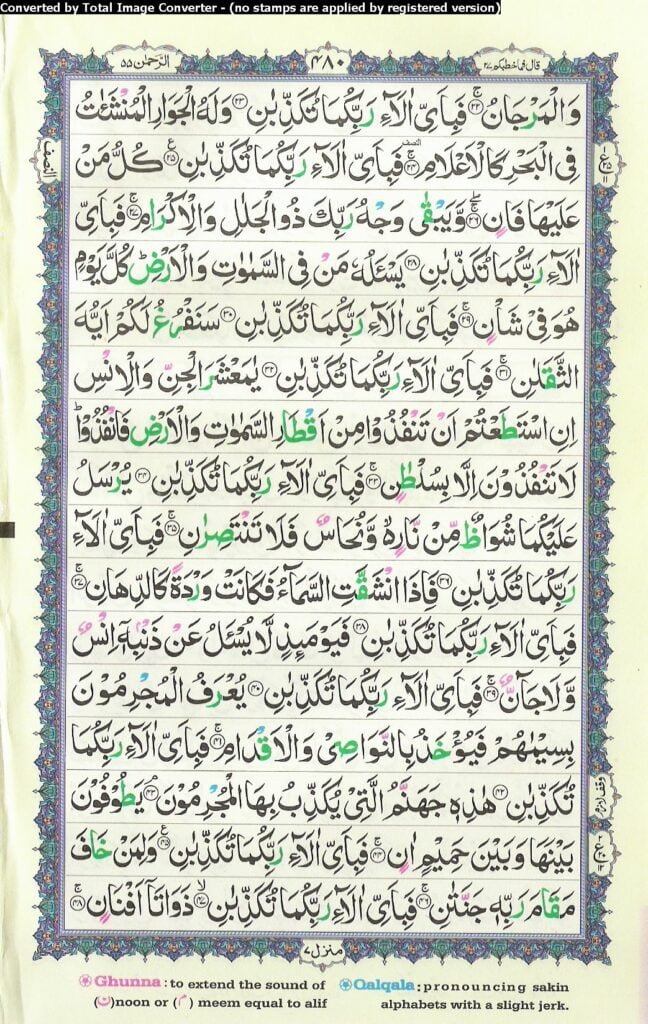 Converted by Total Image Converter - (no stamps are applied by registered version)
الرَّحْمٰن ٥٥
٤٨٠
قال فما خطبكم ٢٧
وَالْمَرْجَانُ ۚ﴿٢٢﴾ فَبِاَىِّ اٰلَآءِ رَبِّكُمَا تُكَذِّبٰنِ ﴿٢٣﴾ وَلَهُ الْجَوَارِ الْمُنْشَئٰتُ
فِى الْبَحْرِ كَالْاَعْلَامِ ۚ﴿٢٤﴾ فَبِاَىِّ اٰلَآءِ رَبِّكُمَا تُكَذِّبٰنِ ﴿٢٥﴾ كُلُّ مَنْ
عَلَيْهَا فَانٍ ﴿٢٦﴾ وَّيَبْقٰى وَجْهُ رَبِّكَ ذُو الْجَلٰلِ وَالْاِكْرَامِ ۚ﴿٢٧﴾ فَبِاَىِّ
اٰلَآءِ رَبِّكُمَا تُكَذِّبٰنِ ﴿٢٨﴾ يَسْئَلُهٗ مَنْ فِى السَّمٰوٰتِ وَالْاَرْضِ ؕ كُلَّ يَوْمٍ
هُوَ فِىْ شَاْنٍ ۚ﴿٢٩﴾ فَبِاَىِّ اٰلَآءِ رَبِّكُمَا تُكَذِّبٰنِ ﴿٣٠﴾ سَنَفْرُغُ لَكُمْ اَيُّهَ
الثَّقَلٰنِ ۚ﴿٣١﴾ فَبِاَىِّ اٰلَآءِ رَبِّكُمَا تُكَذِّبٰنِ ﴿٣٢﴾ يٰمَعْشَرَ الْجِنِّ وَالْاِنْسِ
اِنِ اسْتَطَعْتُمْ اَنْ تَنْفُذُوْا مِنْ اَقْطَارِ السَّمٰوٰتِ وَالْاَرْضِ فَانْفُذُوْا ؕ
لَا تَنْفُذُوْنَ اِلَّا بِسُلْطٰنٍ ۚ﴿٣٣﴾ فَبِاَىِّ اٰلَآءِ رَبِّكُمَا تُكَذِّبٰنِ ﴿٣٤﴾ يُرْسَلُ
عَلَيْكُمَا شُوَاظٌ مِّنْ نَّارٍ ۙ وَّنُحَاسٌ فَلَا تَنْتَصِرٰنِ ۚ﴿٣٥﴾ فَبِاَىِّ اٰلَآءِ
رَبِّكُمَا تُكَذِّبٰنِ ﴿٣٦﴾ فَاِذَا انْشَقَّتِ السَّمَآءُ فَكَانَتْ وَرْدَةً كَالدِّهَانِ ۚ﴿٣٧﴾
فَبِاَىِّ اٰلَآءِ رَبِّكُمَا تُكَذِّبٰنِ ﴿٣٨﴾ فَيَوْمَئِذٍ لَّا يُسْئَلُ عَنْ ذَنْۢبِهٖۤ اِنْسٌ
وَّلَا جَآنٌّ ۚ﴿٣٩﴾ فَبِاَىِّ اٰلَآءِ رَبِّكُمَا تُكَذِّبٰنِ ﴿٤٠﴾ يُعْرَفُ الْمُجْرِمُوْنَ
بِسِيْمٰهُمْ فَيُؤْخَذُ بِالنَّوَاصِىْ وَالْاَقْدَامِ ۚ﴿٤١﴾ فَبِاَىِّ اٰلَآءِ رَبِّكُمَا
تُكَذِّبٰنِ ﴿٤٢﴾ هٰذِهٖ جَهَنَّمُ الَّتِىْ يُكَذِّبُ بِهَا الْمُجْرِمُوْنَ ۘ﴿٤٣﴾ يَطُوْفُوْنَ
بَيْنَهَا وَبَيْنَ حَمِيْمٍ اٰنٍ ۚ﴿٤٤﴾ فَبِاَىِّ اٰلَآءِ رَبِّكُمَا تُكَذِّبٰنِ ﴿٤٥﴾ وَلِمَنْ خَافَ
مَقَامَ رَبِّهٖ جَنَّتٰنِ ۚ﴿٤٦﴾ فَبِاَىِّ اٰلَآءِ رَبِّكُمَا تُكَذِّبٰنِ ۙ﴿٤٧﴾ ذَوَاتَاۤ اَفْنَانٍ ۚ﴿٤٨﴾
النصف
وقف لازم
منزل ٧
Ghunna : to extend the sound of
(ن) noon or (م) meem equal to alif
Qalqala : pronouncing sakin
alphabets with a slight jerk.